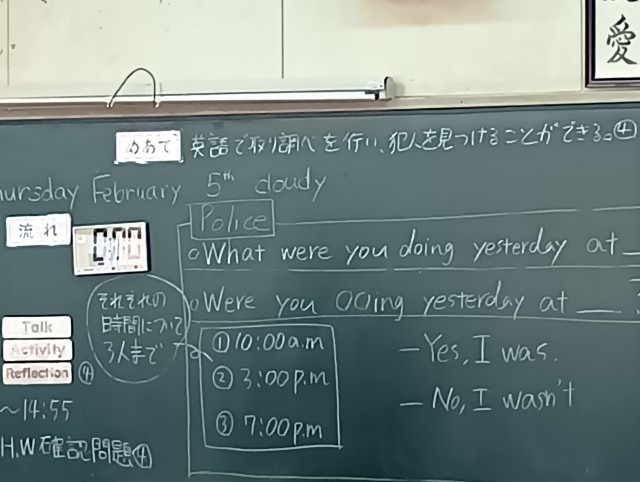 愛
めあて 英語で取り調べを行い、犯人を見つけることができる。④
hursday February 5th cloudy
流れ
0:00
Police
○What were you doing yesterday at __
○Were you ○○ing yesterday at __?
それぞれの
時間について
3人まで
①10:00a.m
②3:00p.m
③7:00p.m
—Yes, I was.
—No, I wasn't
Talk
Activity
Reflection ④
〜14:55
H.W 確認問題④